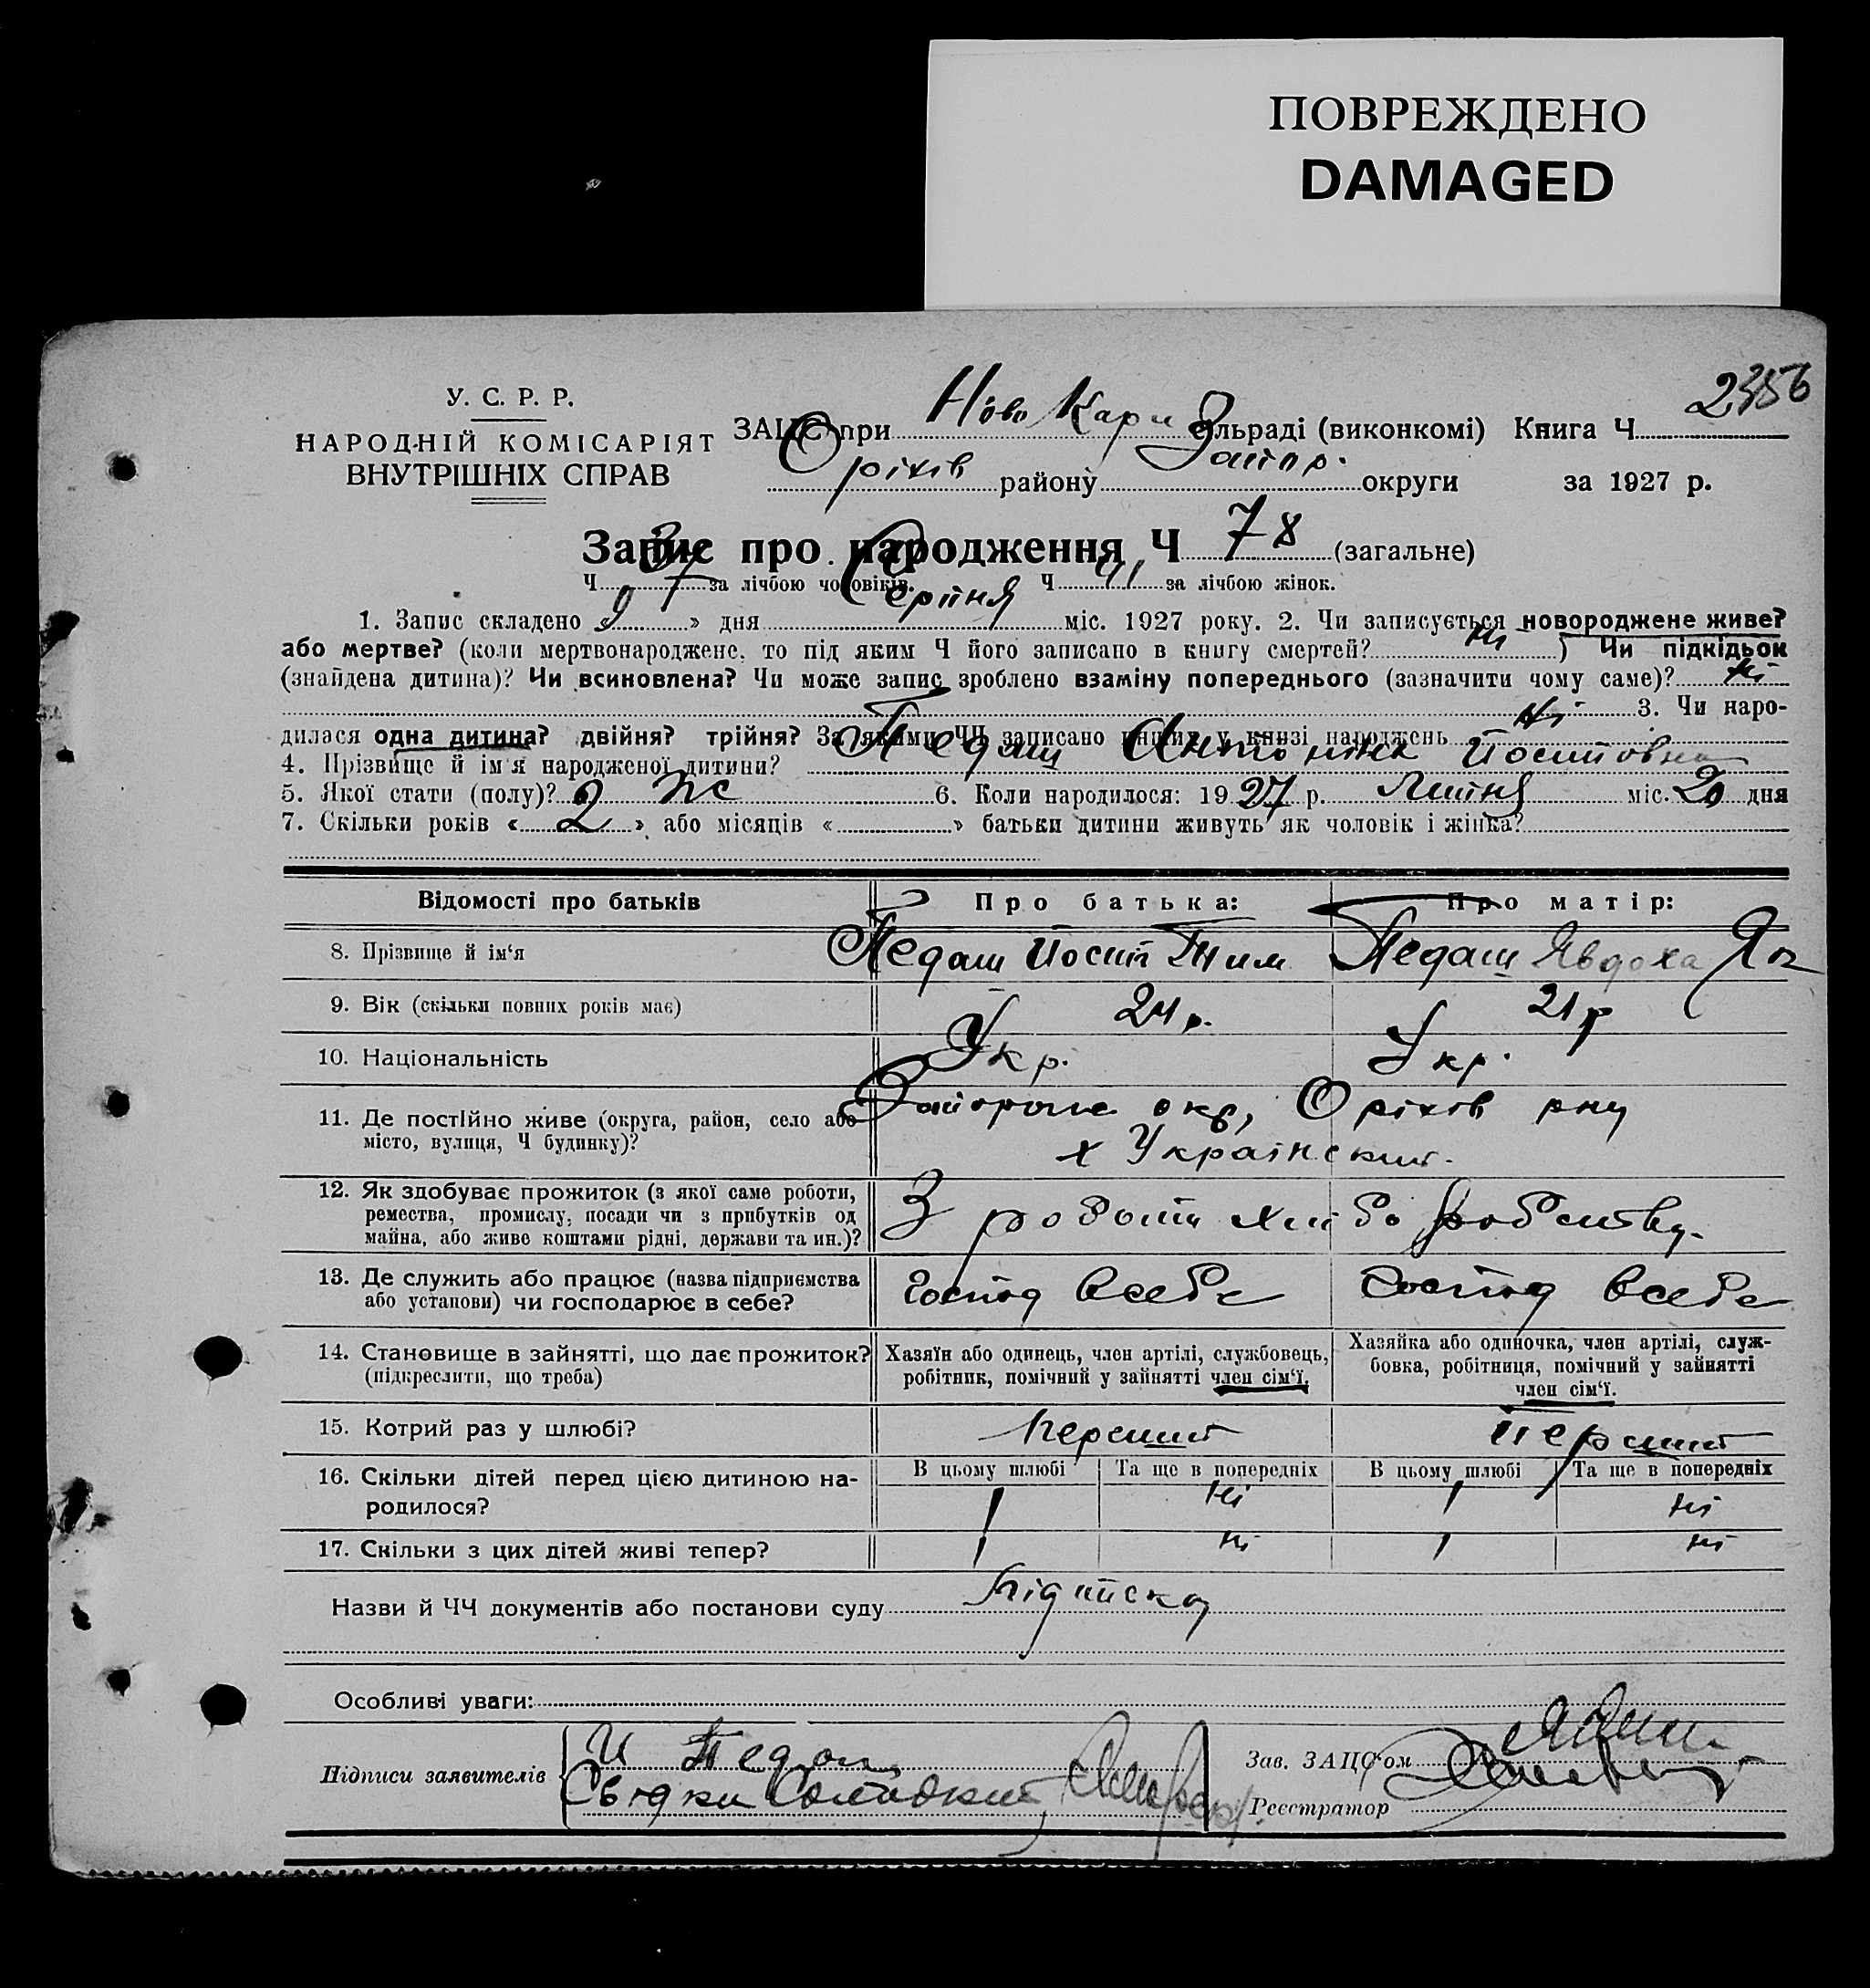 ПОВРЕЖДЕНО
DAMAGED
2356
У. С. Р. Р.
НАРОДНІЙ КОМІСАРІЯТ
ВНУТРІШНІХ СПРАВ
ЗАЦС при Ново Кари сільраді (виконкомі) Книга Ч.
Оріхів району Запор. округи за 1927 р.
Запис про народження Ч 78 (загальне)
Ч 37 за лічбою чоловіків. Ч 41 за лічбою жінок.
1. Запис складено «9» дня Серпня міс. 1927 року. 2. Чи записується новороджене живе?
або мертве? (коли мертвонароджене, то під яким Ч його записано в книгу смертей? Ні ) Чи підкідьок
(знайдена дитина)? Чи всиновлена? Чи може запис зроблено взаміну попереднього (зазначити чому саме)? Ні
3. Чи наро-
дилася одна дитина? двійня? трійня? За якими ЧЧ записано инших у книзі народжень Ні
4. Прізвище й ім'я народженої дитини? Педаш Антоніна Йосиповна
5. Якої стати (полу)? ж 6. Коли народилося: 1927 р. Липня міс. 20 дня
7. Скільки років «2» або місяців « » батьки дитини живуть як чоловік і жінка?
Відомості про батьків Про батька: Про матір:
8. Прізвище й ім'я Педаш Йосип Тим Педаш Явдоха Як
9. Вік (скільки повних років має) 24 р. 21 р
10. Національність Укр. Укр.
11. Де постійно живе (округа, район, село або
місто, вулиця, Ч будинку)? Запоріж окр, Оріхів рну
х Українский.
12. Як здобуває прожиток (з якої саме роботи,
ремества, промислу, посади чи з прибутків од
майна, або живе коштами рідні, держави та ин.)? З роботи хлібо робству.
13. Де служить або працює (назва підприємства
або установи) чи господарює в себе? Господ всебе Господ всебе
14. Становище в зайнятті, що дає прожиток?
(підкреслити, що треба)
Хазяїн або одинець, член артілі, службовець,
робітник, помічний у зайнятті член сім'ї.
Хазяйка або одиночка, член артілі, служ-
бовка, робітниця, помічний у зайнятті
член сім'ї.
15. Котрий раз у шлюбі? перший перший
16. Скільки дітей перед цією дитиною на-
родилося?
В цьому шлюбі Та ще в попередніх В цьому шлюбі Та ще в попередніх
1 Ні 1 Ні
17. Скільки з цих дітей живі тепер? 1 Ні 1 Ні
Назви й ЧЧ документів або постанови суду підписка
Особливі уваги:
Підписи заявителів
И Педаш
Свідки
Зав. ЗАЦС'ом
Реєстратор